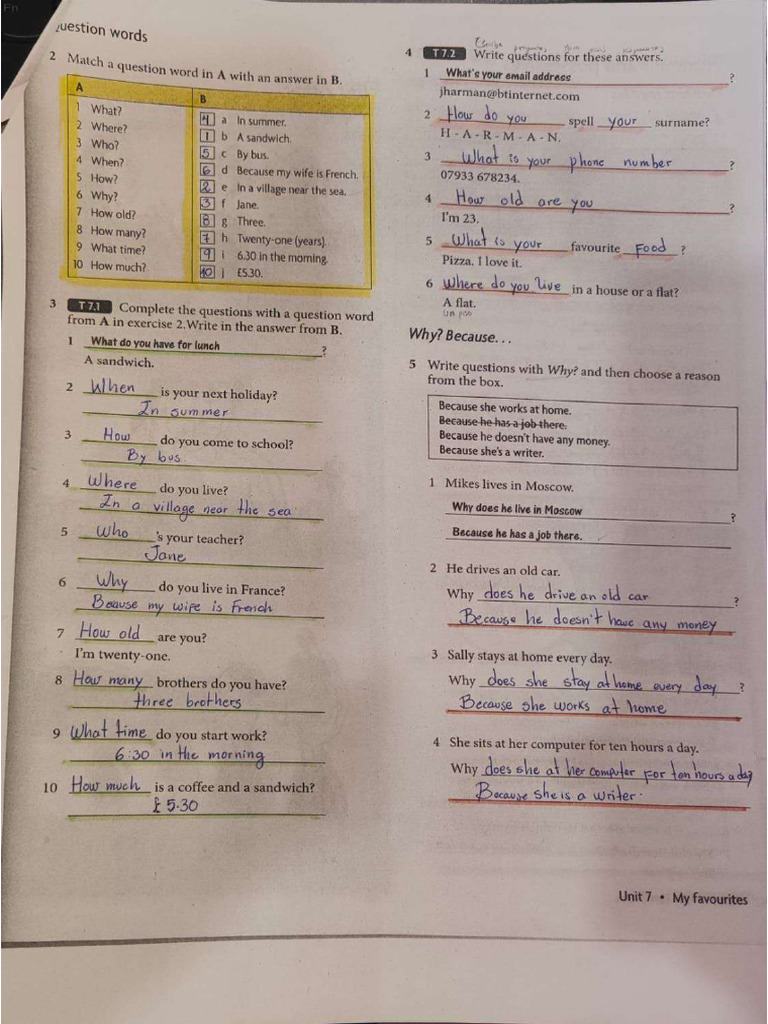 Fn
uestion words
2 Match a question word in A with an answer in B.
A
1 What?
2 Where?
3 Who?
4 When?
5 How?
6 Why?
7 How old?
8 How many?
9 What time?
10 How much?
B
4 a In summer.
1 b A sandwich.
5 c By bus.
6 d Because my wife is French.
2 e In a village near the sea.
3 f Jane.
8 g Three.
7 h Twenty-one (years).
9 i 6.30 in the morning.
10 j £5.30.
3 T 7.1 Complete the questions with a question word
from A in exercise 2.Write in the answer from B.
1 What do you have for lunch ?
A sandwich.
2 When is your next holiday?
In summer
3 How do you come to school?
By bus
4 Where do you live?
In a village near the sea
5 Who 's your teacher?
Jane
6 Why do you live in France?
Beause my wife is French
7 How old are you?
I'm twenty-one.
8 How many brothers do you have?
three brothers
9 What time do you start work?
6:30 in the morning
10 How much is a coffee and a sandwich?
£ 5.30
4 T 7.2 Write questions for these answers.
1 What's your email address ?
jharman@btinternet.com
2 How do you spell your surname?
H - A - R - M - A - N.
3 What is your phone number ?
07933 678234.
4 How old are you ?
I'm 23.
5 What is your favourite Food ?
Pizza. I love it.
6 Where do you live in a house or a flat?
A flat.
un piso
Why? Because...
5 Write questions with Why? and then choose a reason
from the box.
Because she works at home.
Because he has a job there.
Because he doesn't have any money.
Because she's a writer.
1 Mikes lives in Moscow.
Why does he live in Moscow ?
Because he has a job there.
2 He drives an old car.
Why does he drive an old car ?
Because he doesn't have any money
3 Sally stays at home every day.
Why does she stay at home every day ?
Because she works at home
4 She sits at her computer for ten hours a day.
Why does she at her computer for ten hours a day
Because she is a writer.
Unit 7 • My favourites